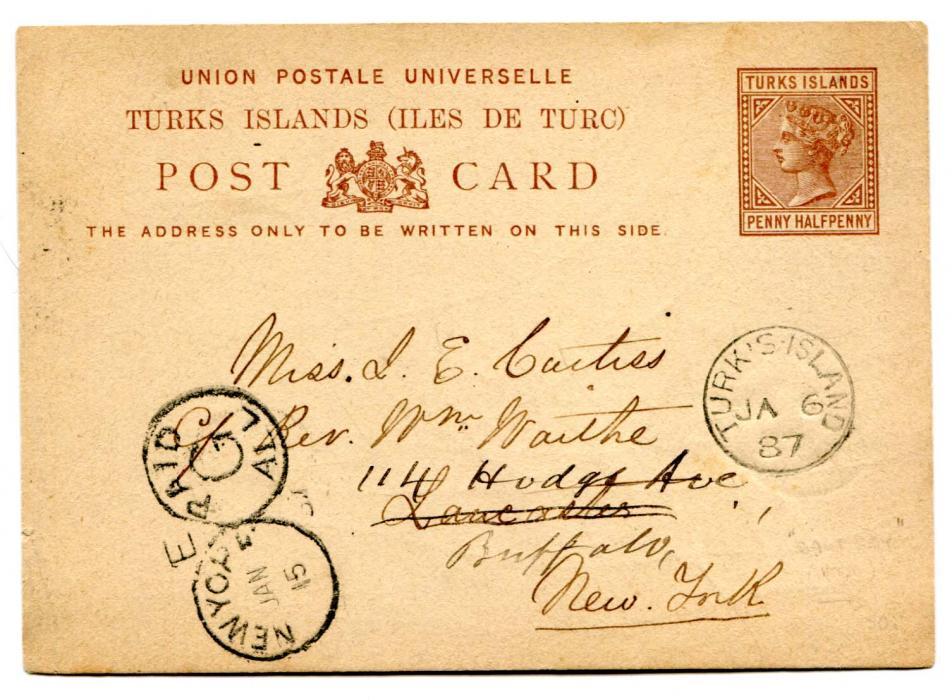 UNION POSTALE UNIVERSELLE
TURKS ISLANDS (ILES DE TURC)
POST CARD
THE ADDRESS ONLY TO BE WRITTEN ON THIS SIDE.
TURKS ISLANDS
PENNY HALFPENNY
Miss. I. E. Curtiss
C/ Rev. Wm Waithe
114 Hodge Ave
Lancaster
Buffalo,
New. York
TURK'S·ISLAND
JA 6
87
PAID
G
ALL
E
NEW YO
JAN
15